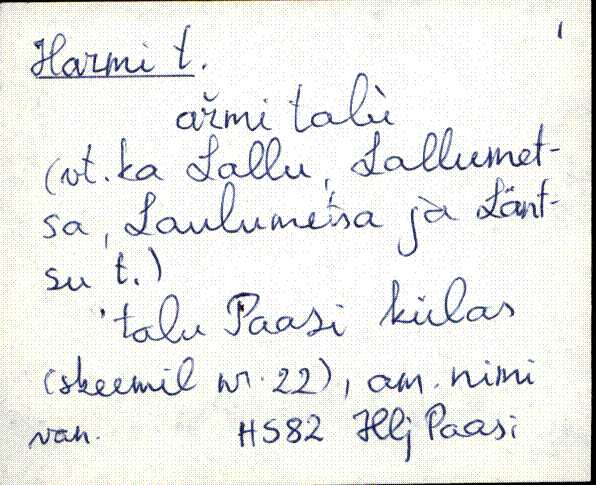 1
Harmi t.
ařmi talù
(vt. ka Lallu, Lallumet-
sa, Laulumetsa ja Länt-
su t.)
talu Paasi külas
(skeemil nr. 22), am. nimi
van. HS82 Hlj Paasi